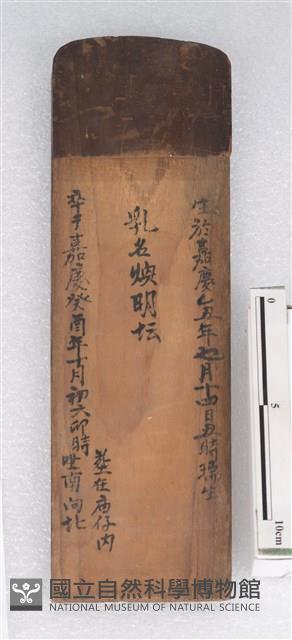 生於嘉慶乙丑年七月十四日丑時瑞生
乳名煥明坛
卒于嘉慶癸酉年十月初六卯時
葬在庙仔内
坐南向北
0
5
10cm
國立自然科學博物館
NATIONAL MUSEUM OF NATURAL SCIENCE